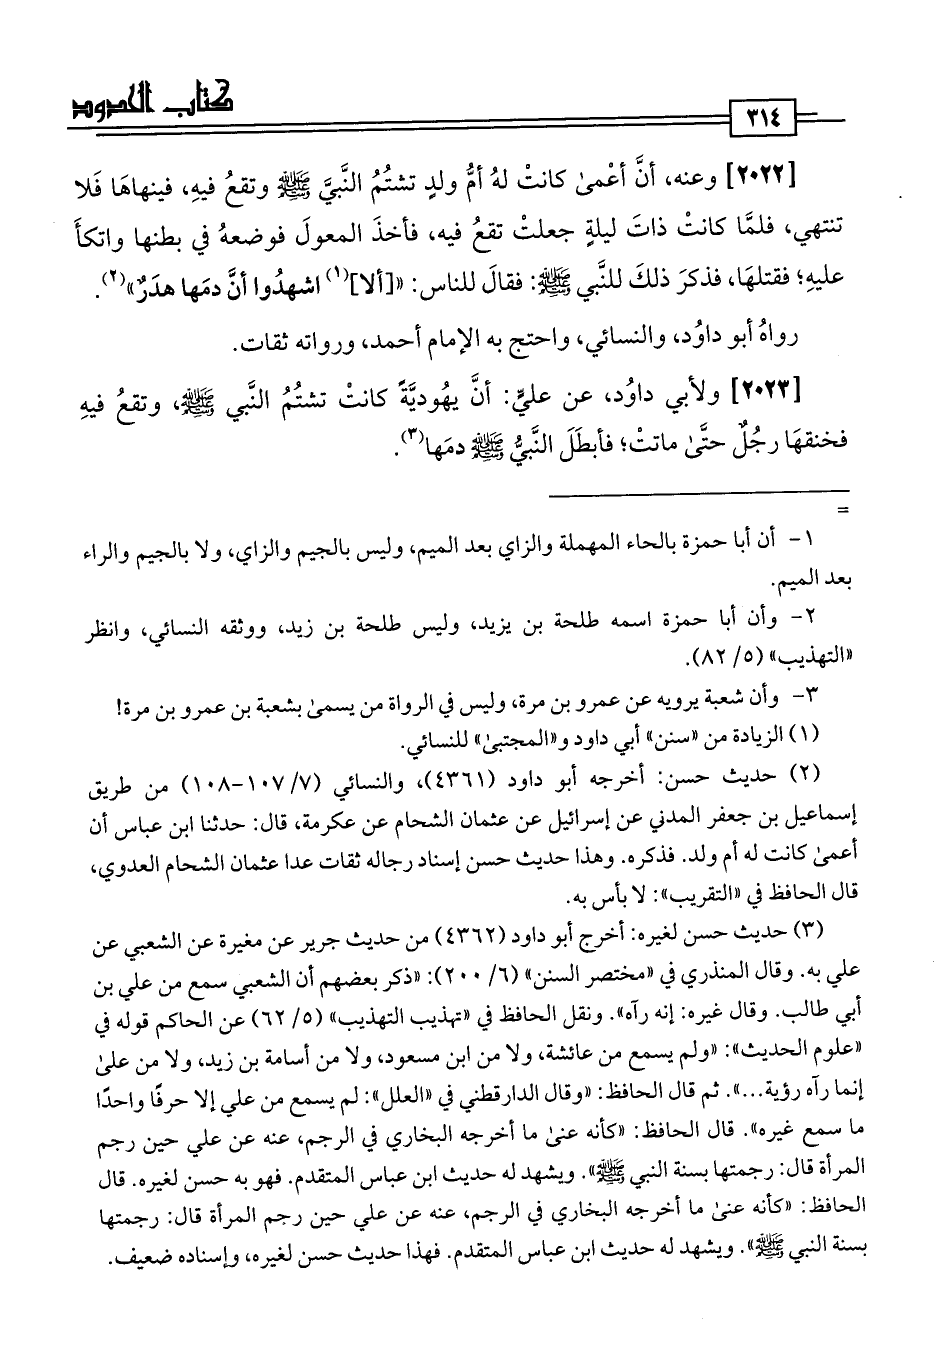 كتاب الحدود
٣١٤
[٢٠٢٢] وعنه، أنَّ أعْمىٰ كانتْ لهُ أمُّ ولدٍ تشتُمُ النَّبيَّ ﷺ وتقعُ فيهِ، فينهاهَا فَلا
تنتهي، فلمَّا كانتْ ذاتَ ليلةٍ جعلتْ تقعُ فيه، فأخذَ المعولَ فوضعهُ في بطنها واتكأَ
عليهِ؛ فقتلهَا، فذكرَ ذلكَ للنَّبي ﷺ: فقالَ للناس: «[ألا](١) اشهدُوا أنَّ دمَها هدَرٌ»(٢).
رواهُ أبو داوُد، والنسائي، واحتج به الإمام أحمد، ورواته ثقات.
[٢٠٢٣] ولأبي داوُد، عن عليٍّ: أنَّ يهُوديَّةً كانتْ تشتُمُ النَّبي ﷺ، وتقعُ فيهِ
فخنقهَا رجُلٌ حتَّىٰ ماتتْ؛ فأبطَلَ النَّبيُّ ﷺ دمَها(٣).
=
١- أن أبا حمزة بالحاء المهملة والزاي بعد الميم، وليس بالجيم والزاي، ولا بالجيم والراء
بعد الميم.
٢- وأن أبا حمزة اسمه طلحة بن يزيد، وليس طلحة بن زيد، ووثقه النسائي، وانظر
«التهذيب» (٥/ ٨٢).
٣- وأن شعبة يرويه عن عمرو بن مرة، وليس في الرواة من يسمىٰ بشعبة بن عمرو بن مرة!
(١) الزيادة من «سنن» أبي داود و«المجتبىٰ» للنسائي.
(٢) حديث حسن: أخرجه أبو داود (٤٣٦١)، والنسائي (٧/ ١٠٧-١٠٨) من طريق
إسماعيل بن جعفر المدني عن إسرائيل عن عثمان الشحام عن عكرمة، قال: حدثنا ابن عباس أن
أعمىٰ كانت له أم ولد. فذكره. وهذا حديث حسن إسناد رجاله ثقات عدا عثمان الشحام العدوي،
قال الحافظ في «التقريب»: لا بأس به.
(٣) حديث حسن لغيره: أخرج أبو داود (٤٣٦٢) من حديث جرير عن مغيرة عن الشعبي عن
علي به. وقال المنذري في «مختصر السنن» (٦/ ٢٠٠): «ذكر بعضهم أن الشعبي سمع من علي بن
أبي طالب. وقال غيره: إنه رآه». ونقل الحافظ في «تهذيب التهذيب» (٥/ ٦٢) عن الحاكم قوله في
«علوم الحديث»: «ولم يسمع من عائشة، ولا من ابن مسعود، ولا من أسامة بن زيد، ولا من علىٰ
إنما رآه رؤية...». ثم قال الحافظ: «وقال الدارقطني في «العلل»: لم يسمع من علي إلا حرفًا واحدًا
ما سمع غيره». قال الحافظ: «كأنه عنىٰ ما أخرجه البخاري في الرجم، عنه عن علي حين رجم
المرأة قال: رجمتها بسنة النبي ﷺ». ويشهد له حديث ابن عباس المتقدم. فهو به حسن لغيره. قال
الحافظ: «كأنه عنىٰ ما أخرجه البخاري في الرجم، عنه عن علي حين رجم المرأة قال: رجمتها
بسنة النبي ﷺ». ويشهد له حديث ابن عباس المتقدم. فهذا حديث حسن لغيره، وإسناده ضعيف.